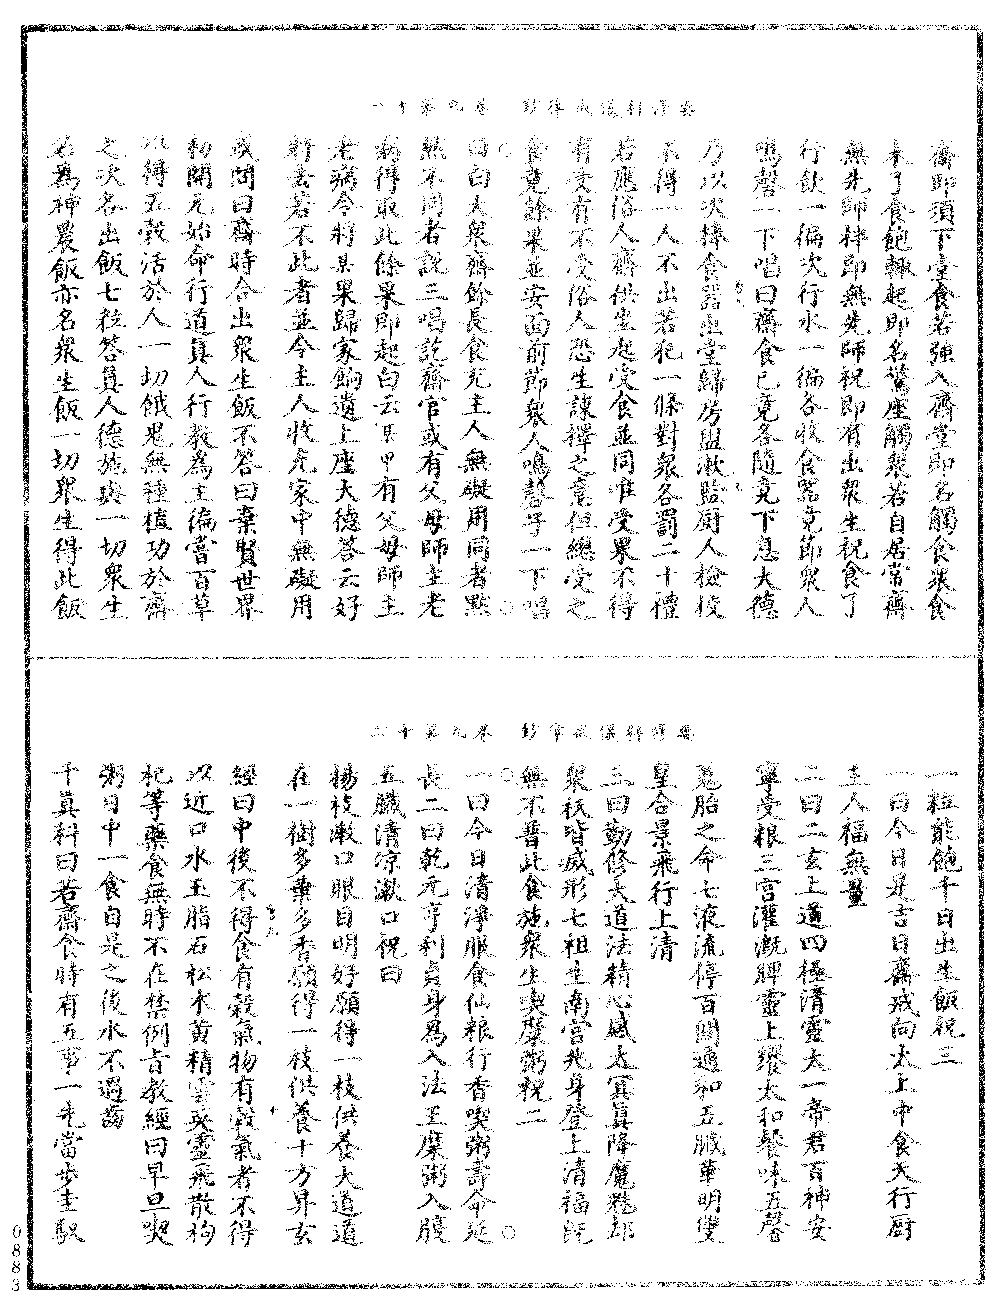 要修科儀戒律鈔　卷九　第十一
齋即須下堂食若強入齋堂即名觸食衆食
未了食飽輙起即名驚座觸衆若自居常齋
無先師拌即無先師祝即有出衆生祝食了
行飲一徧次行水一徧各收食器竟節衆人
鳴磬一下唱曰齋食已竟各隨竟下息大德
乃以次捧食器出堂歸房盥漱監厨人檢校
不得一人不出若犯一條對衆各罰二十禮
若應俗人齋供坐起受食並同唯受果不得
有受有不受俗人恐生諫擇之意但總受之
食竟餘果並安面前節衆人鳴磬子一下唱
曰白大衆齋餘長食充主人無礙用同者默
然不同者說三唱訖齋官或有父母師主老
病得取此餘果即起白云某甲有父母師主
老病今將某果歸家餉遺上座大德答云好
將去若不此者並令主人收充家中無礙用
或問曰齋時合出衆生飯不答曰棄賢世界
初開元始命行道真人行教為主徧嘗百草
以得五穀活於人一切餓鬼無種植功於齋
之次各出飯七粒答真人德施與一切衆生
名為神農飯亦名衆生飯一切衆生得此飯
要修科儀戒律鈔　卷九　第十二
一粒能飽千日出生飯祝三
一曰今日是吉日齋戒向太上中食天行厨
主人福無量
二曰二玄上道四極清靈太一帝君百神安
寧受粮三宮灌溉脾靈上饗太和餐味五馨
鬼胎之命七液流停百關通和五臟華明雙
皇合景飛行上清
三曰勤修大道法精心感太冥真降魔魅却
衆祆皆滅形七祖生南宮兆身登上清福既
無不普此食施衆生喫糜粥祝二
一曰今日清淨服食仙粮行香喫粥壽命延
長二曰乾元亨利貞身為入法王糜粥入腹
五臟清凉漱口祝曰
楊枝漱口眼自明好願得一枝供養大道道
在一樹多葉多香願得一枝供養十方昇玄
經曰中後不得食有穀氣物有穀氣者不得
以近口水玉脂石松木黄精雲英靈飛散枸
杞等藥食無時不在禁例旨教經曰早旦喫
粥日中一食自是之後水不過齒
千真科曰若齋食時有五事一先當步圭馭
0883